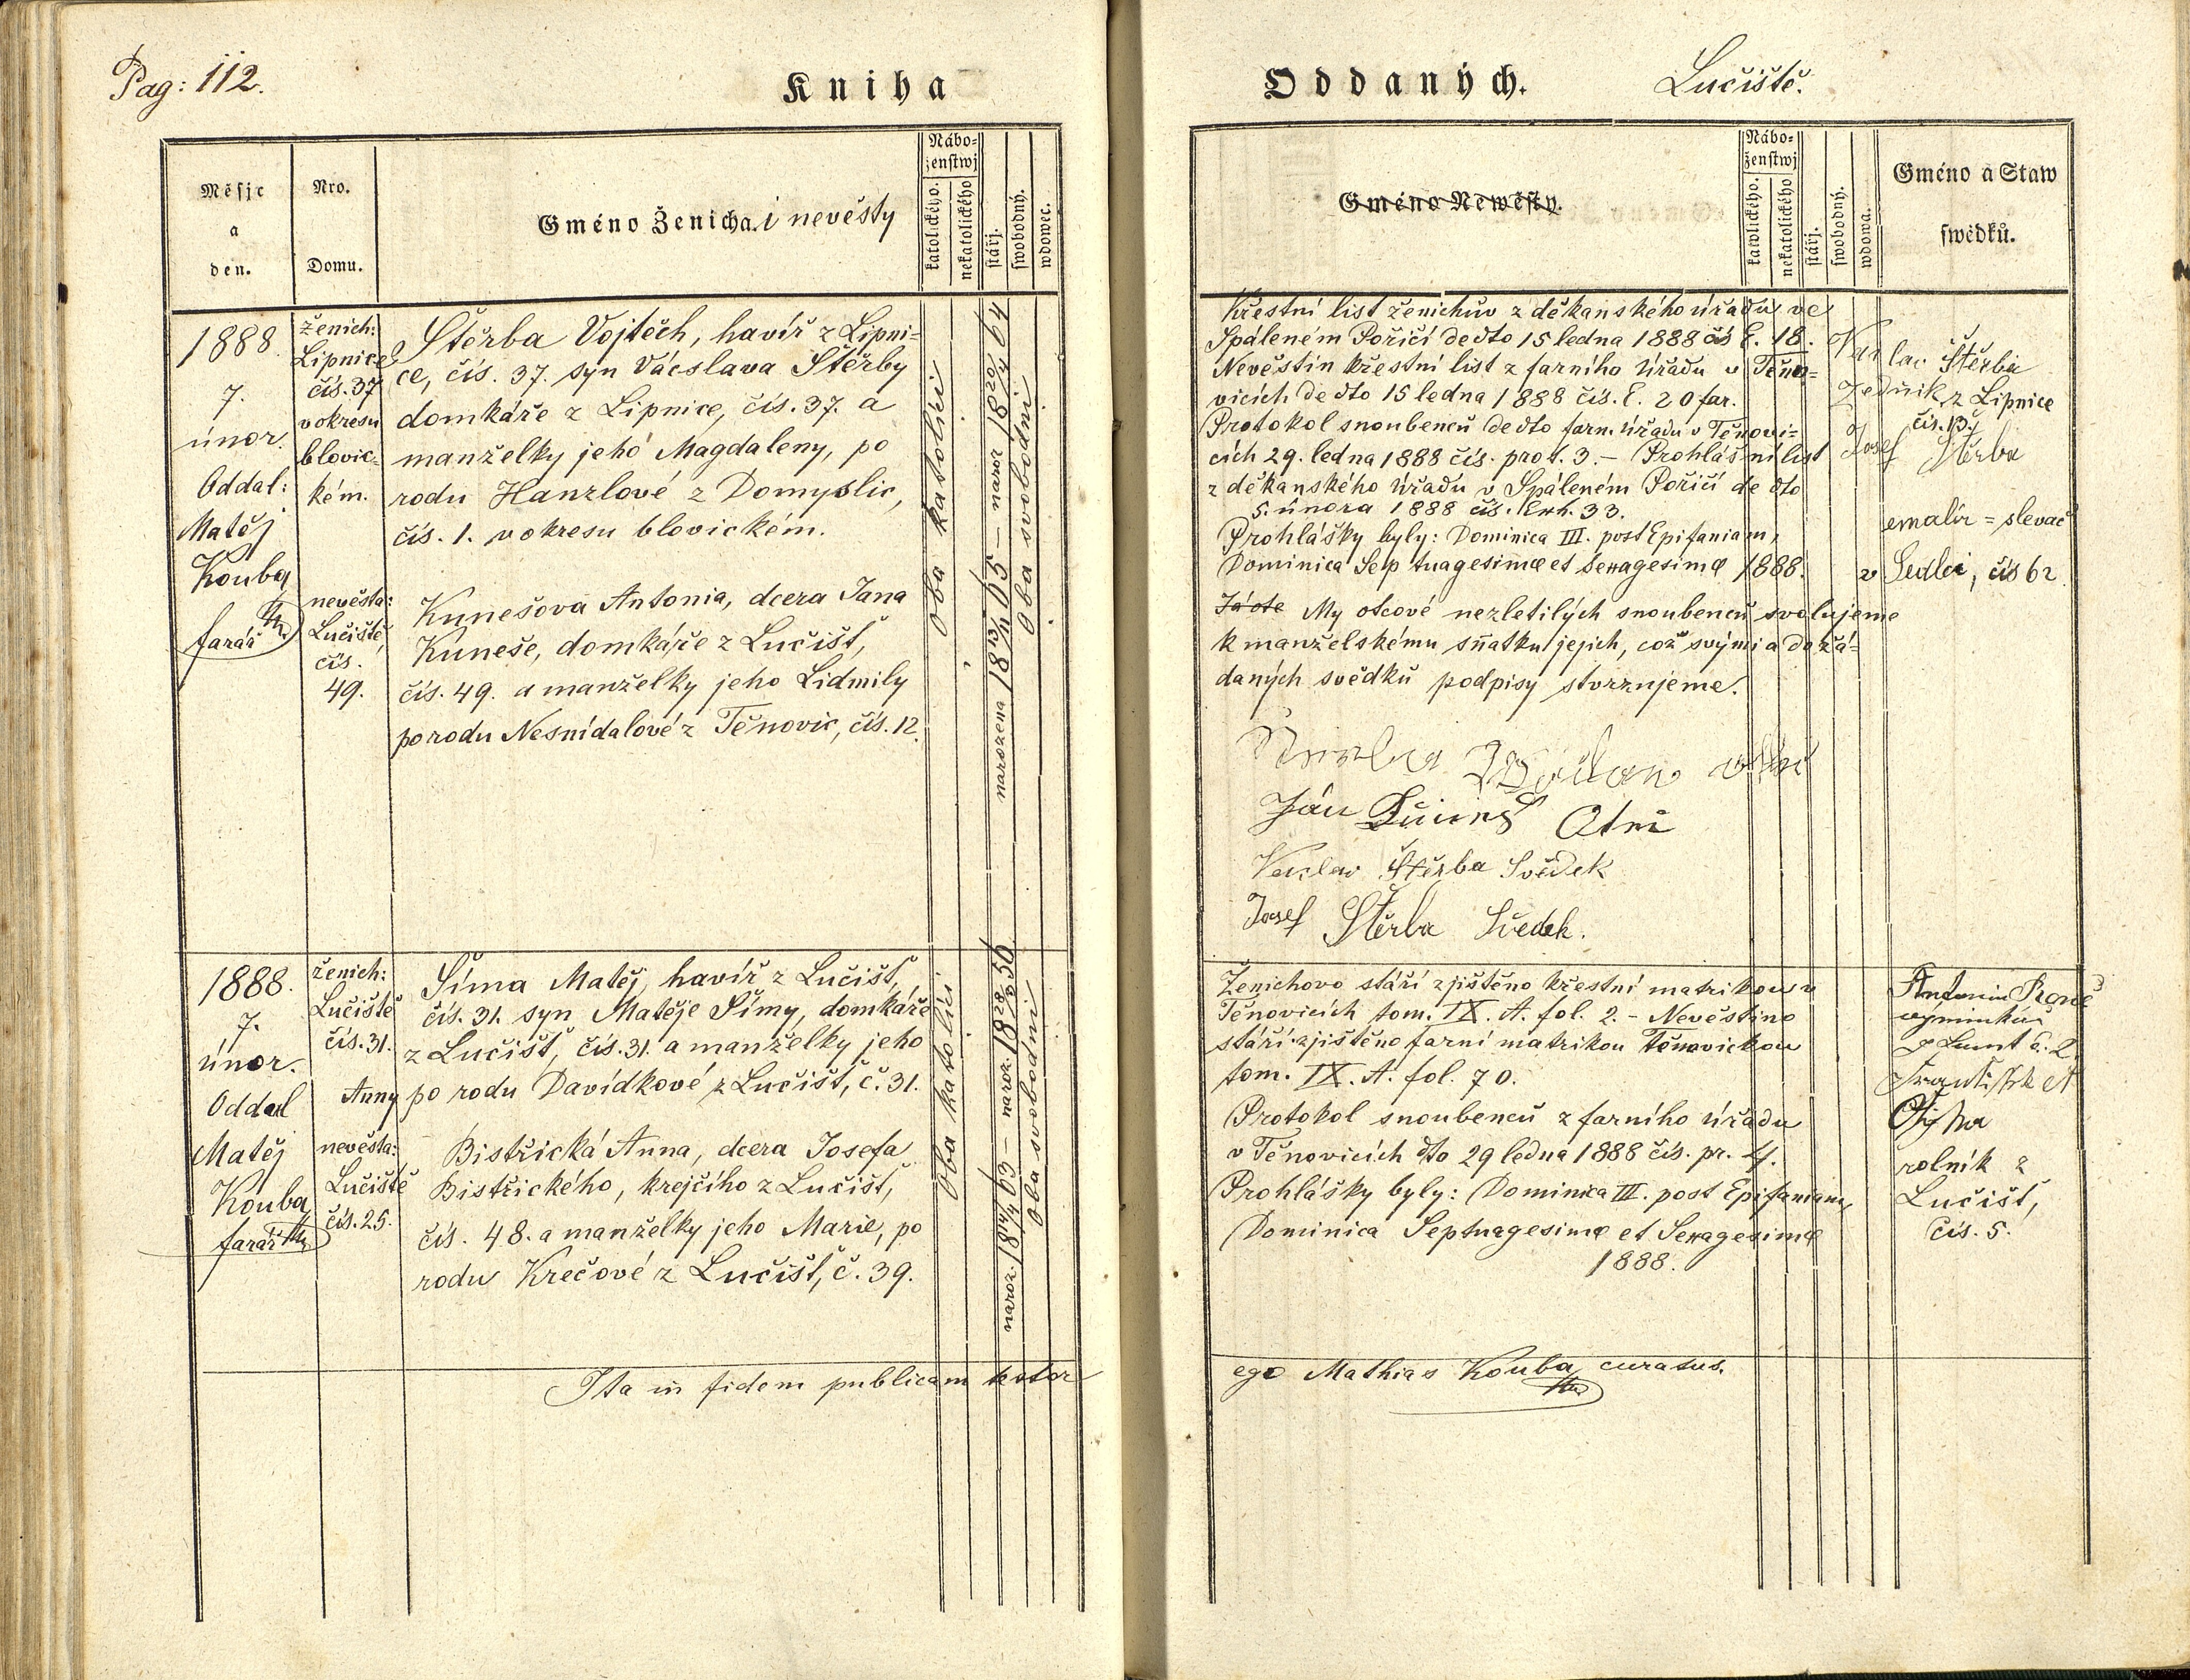 Pag: 112.
Kniha
Měsjc
a
den.
Nro.
Domu.
Gméno Ženicha. i nevěsty
Nábo=
ženstwj
katolického.
nekatolického
stářj.
swobodný.
wdowec.
1888
7.
únor.
Oddal:
Matěj
Kouba
farář
ženich:
Lipnice
čís. 37
v okresu
blovic=
kém.
Štěrba Vojtěch, havíř z Lipni=
ce, čís. 37. syn Václava Štěrby
domkáře z Lipnice, čís. 37. a
manželky jeho Magdaleny, po
rodu Hanzlové z Domyslic,
čís. 1. v okresu blovickém.
nevěsta:
Lučiště,
čís.
49.
Kunešova Antonia, dcera Jana
Kuneše, domkáře z Lučišť,
čís. 49. a manželky jeho Lidmily
po rodu Nesnídalové z Těnovic, čís. 12.
oba katolíci
narozena 18 13/11 65 — naroz 18 20/4 64
oba svobodni
1888.
7.
únor.
Oddal
Matěj
Kouba
farář
ženich:
Lučiště
čís. 31.
Šíma Matěj, havíř z Lučišť,
čís. 31. syn Matěje Šímy, domkáře
z Lučišť, čís. 31. a manželky jeho
Anny po rodu Davídkové z Lučišť, č. 31.
nevěsta:
Lučiště
čís. 25.
Bistřická Anna, dcera Josefa
Bistřického, krejčího z Lučišť,
čís. 48. a manželky jeho Marie, po
rodu Krečové z Lučišť, č. 39.
oba katolíci
oba svobodni
Ita in fidem publicam testor
Oddaných.
Lučiště.
Gméno Newěsty.
Nábo=
ženstwj
katolického.
nekatolického
stářj.
swobodný.
wdowa.
Gméno a Staw
swědků.
Křestní list ženichův z děkanského úřadu ve
Spáleném Poříčí de dto 15 ledna 1888 čís E. 18.
Nevěstin křestní list z farního úřadu v Těno=
vicích de dto 15 ledna 1888 čís. E. 20 far.
Protokol snoubenců de dto farn. úřadu v Těnovi=
cích 29. ledna 1888 čís. prot. 3. — Prohlášní list
z děkanského úřadu v Spáleném Poříčí de dto
5. února 1888 čís. Exh. 33.
Prohlášky byly: Dominica III. post Epifaniam,
Dominica Septuagesimæ et Sexagesimæ 1888.
My otcové nezletilých snoubenců svolujeme
k manželskému sňatku jejich, což svými a dožá=
daných svědků podpisy stvrzujeme.
Ján
Vaclav Štěrba Svědek
Josef Štěrba Svedek.
Štěrba
Zedník z Lipnice
čís.
Josef Štěrba
slevač
v Sedlci, čís 62.
Ženichovo stáří zjištěno křestní matrikou v
Těnovicích tom. IX. A. fol. 2. — Nevěstino
stáří zjištěno farní matrikou Těnovickou
tom. IX. A. fol. 70.
Protokol snoubenců z farního úřadu
v Těnovicích dto 29 ledna 1888 čís. pr. 4.
Prohlášky byly: Dominica III. post Epifaniam,
Dominica Septuagesimæ et Sexagesimæ
1888.
Antonín
František
rolník z
Lučišť,
čís. 5.
ego Mathias Kouba, curatus.